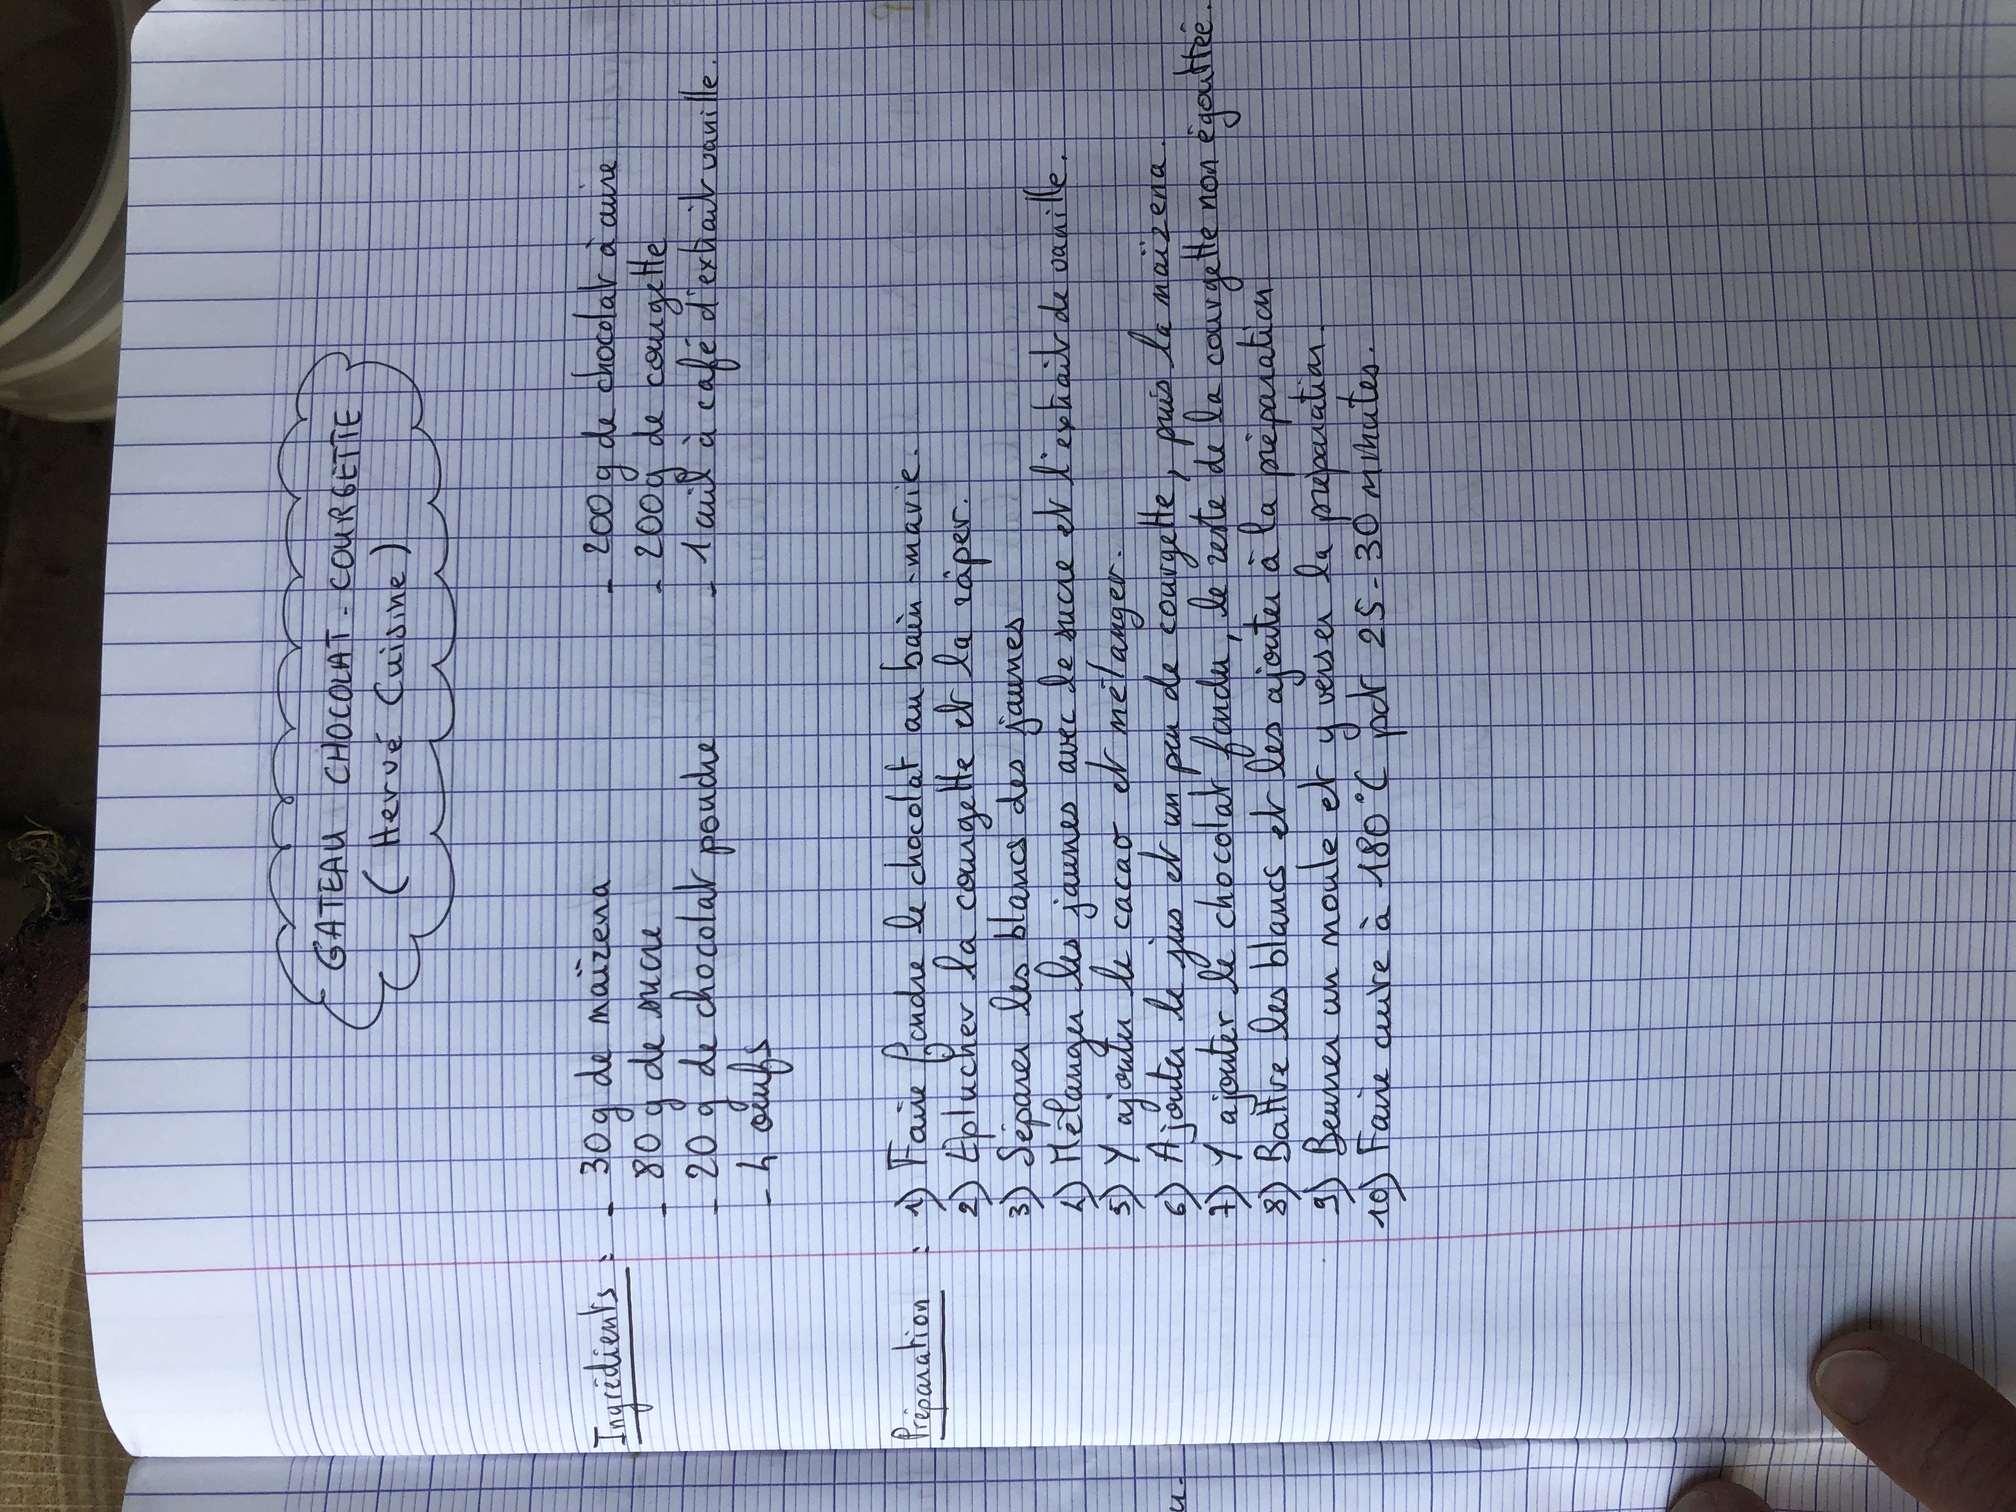 GATEAU CHOCOLAT-COURGETTE
(Hervé Cuisine)
Ingrédients :
- 30g de maïzena
- 80g de sucre
- 20g de chocolat poudre
- 4 oeufs
- 200g de chocolat à cuire
- 200g de courgette
- 1 cuil à café d'extrait vanille.
Préparation :
1) Faire fondre le chocolat au bain-marie.
2) Eplucher la courgette et la râper.
3) Séparer les blancs des jaunes
4) Mélanger les jaunes avec le sucre et l'extrait de vanille.
5) Y ajouter le cacao et mélanger.
6) Ajouter le jus et un peu de courgette, puis la maïzena.
7) Y ajouter le chocolat fondu, le reste de la courgette non égouttée.
8) Battre les blancs et les ajouter à la préparation
9) Beurrer un moule et y verser la préparation.
10) Faire cuire à 180°C pdt 25-30 minutes.
u.